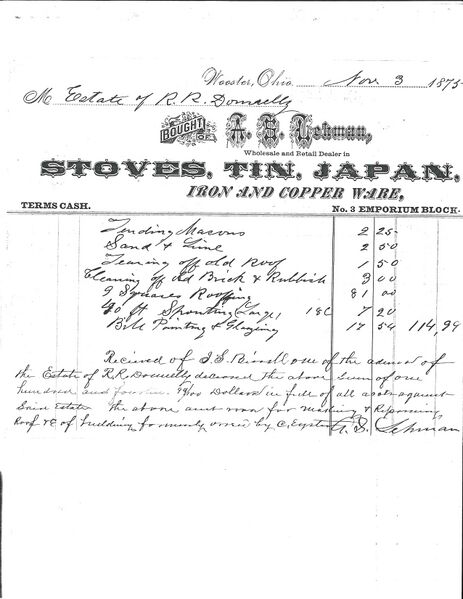 Wooster, Ohio Nov 3 1875
M Estate of R. R. Donnelly
BOUGHT OF A. S. Lehman,
Wholesale and Retail Dealer in
STOVES, TIN, JAPAN,
IRON AND COPPER WARE,
TERMS CASH. No. 3 EMPORIUM BLOCK.
Tending Masons 2 25
Sand & Lime 2 50
Tearing off old Roof 1 50
Cleaning of old Brick & Rubbish 3 00
9 Squares Roofing 81 00
40 ft Spouting Large 18c 7 20
Bill Painting & Glazing 17 54 114,99
Recieved of one of the admrs of
the Estate of R. R. Donnelly deceased the above Sum of one
hundred and fourteen 99/100 Dollars in full of all accts against
Said Estate The above amt was for making & Repairing
Roof &c of building formerly owned by C. A. S. Lehman